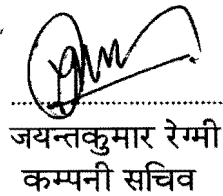 जयन्तकुमार रेग्मी
कम्पनी सचिव